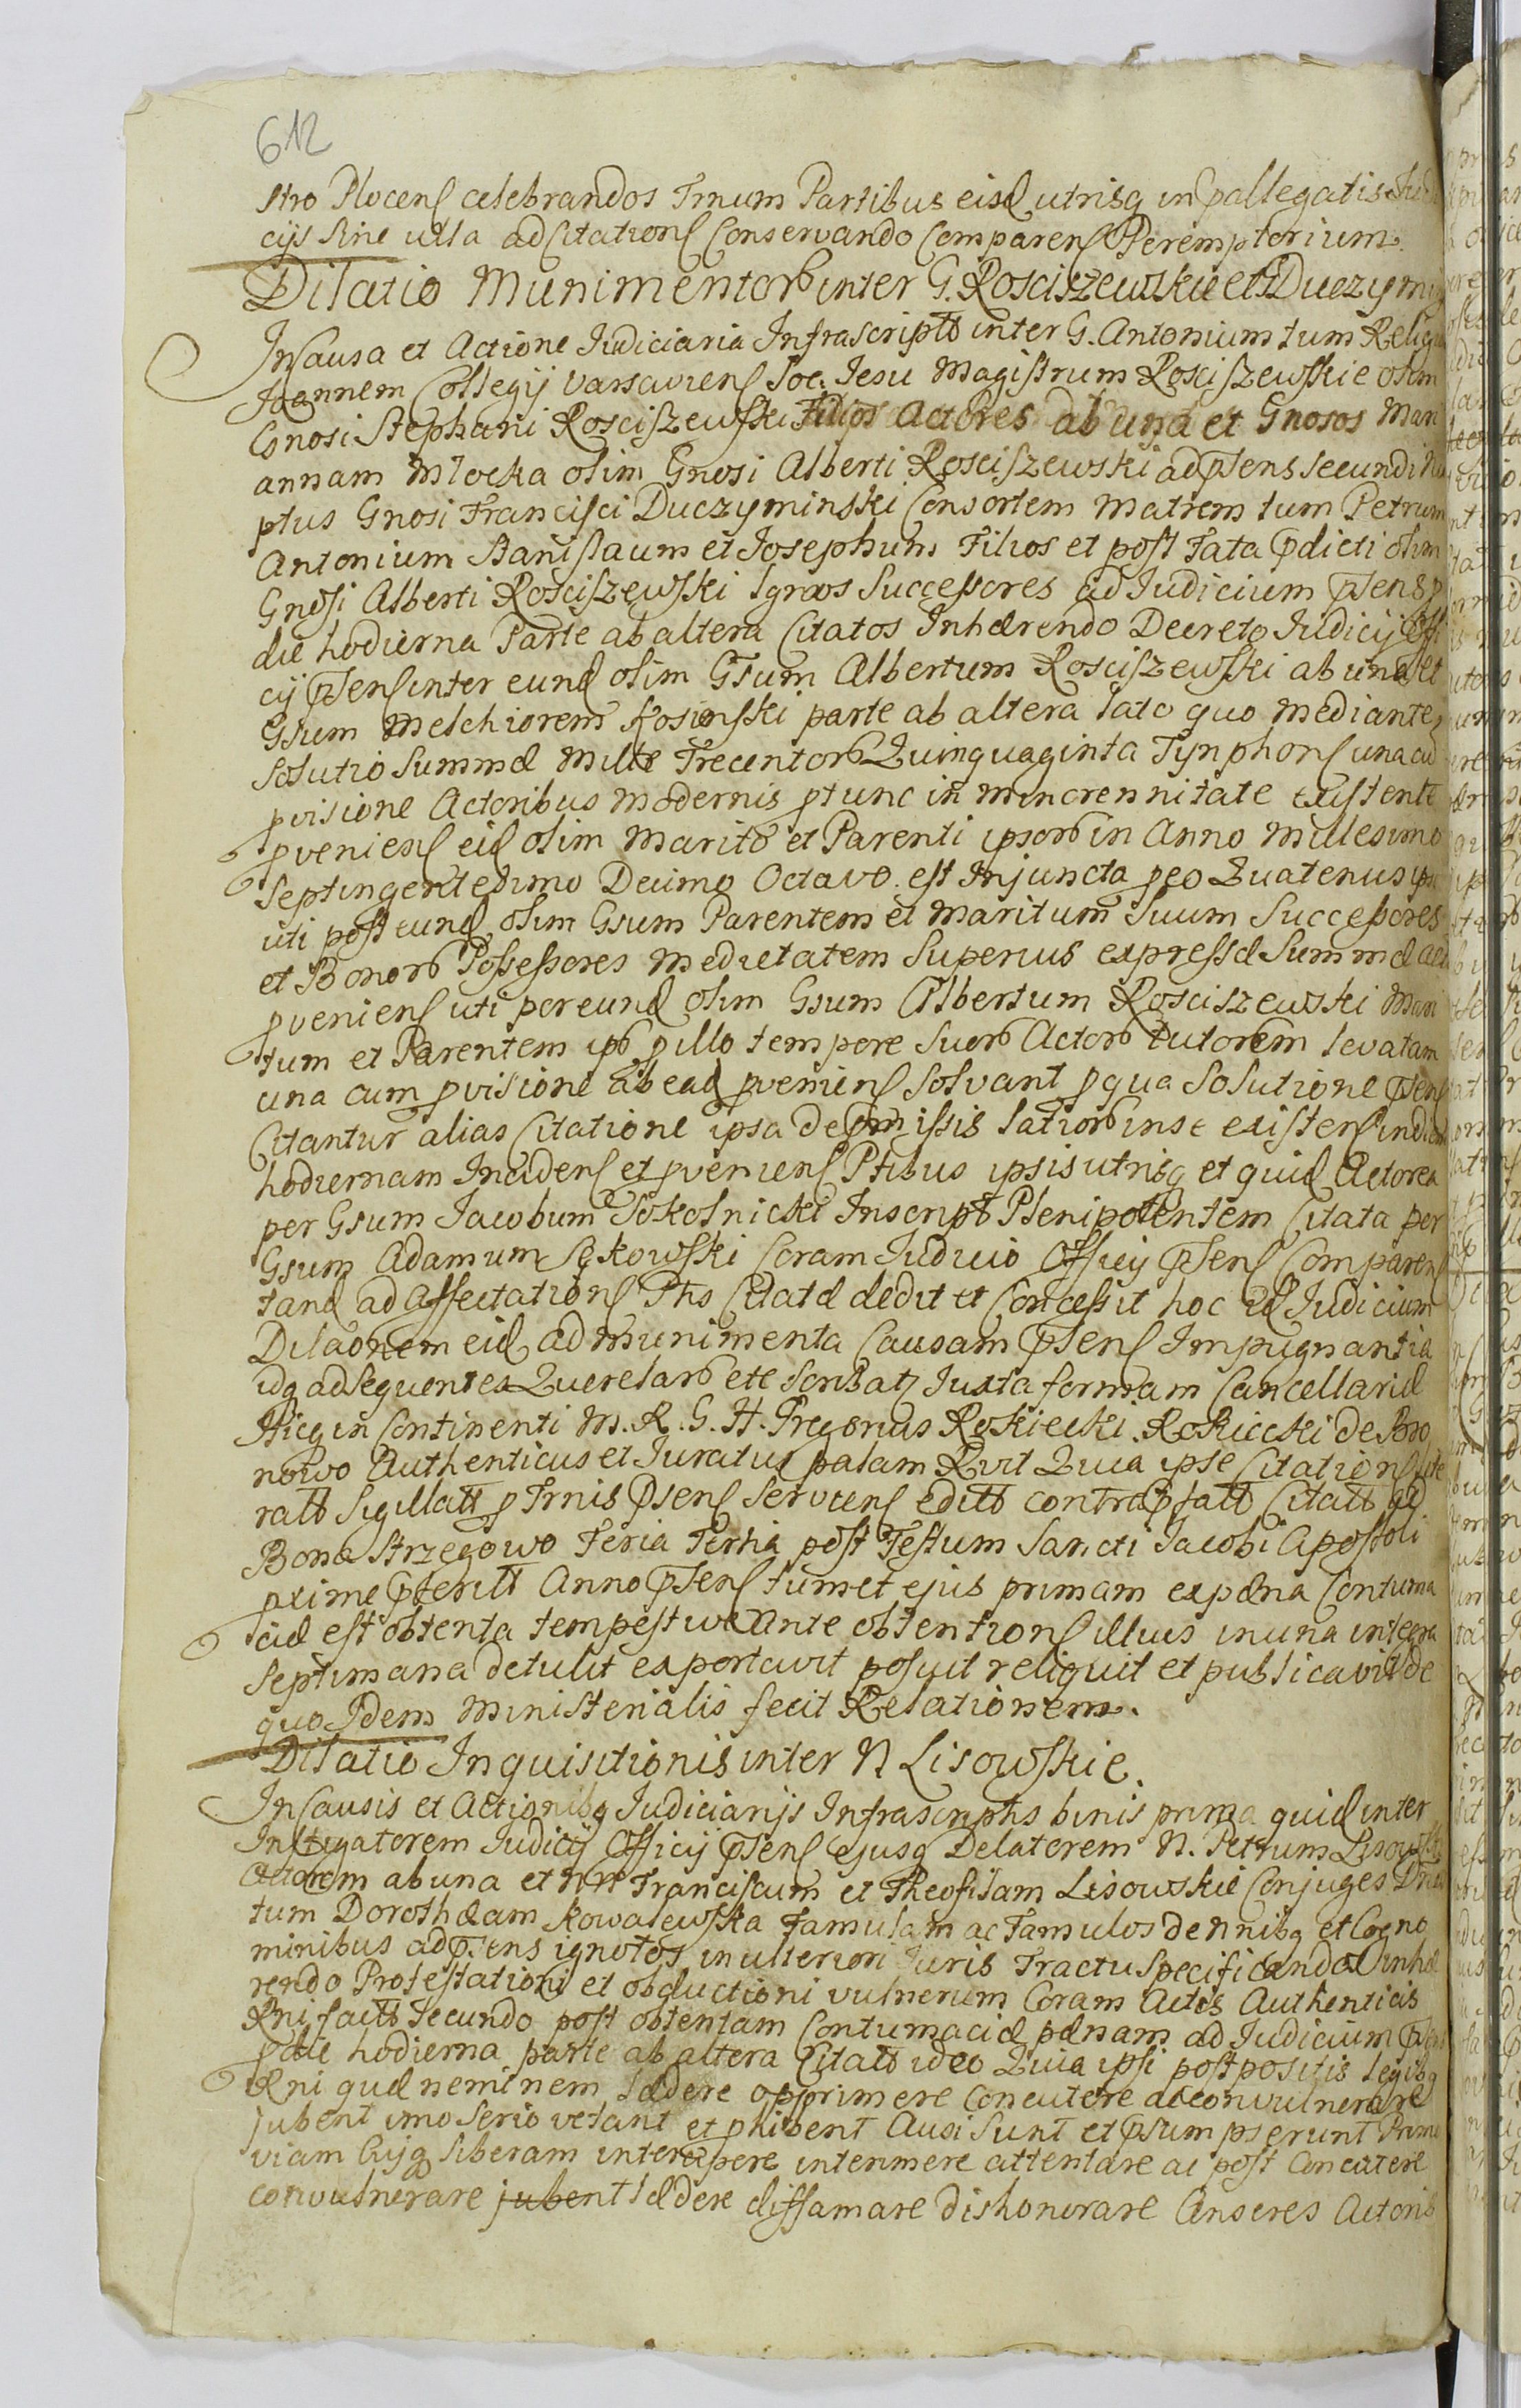 612
stro Plocens celebrandos Trnum Partibus eisd utrisq in pallegatis Judi
cijs sine ulla adcitations conservando comparens Peremptorium.
Dilatio Munimentorb inter G. Rosciszewskie et Duczymi
In Causa et Actione Judiciaria Infrascriptt inter G. Antonium tum Relig
Joannem Collegij Varsaviens Soc. Jesu Magistrum Rosciszewskie olim
Gnosi Stephani Rosciszewski Filios Actores ab una et Gnosos Mari
annam Mlocka olim Gnosi Alberti Rosciszewski ad psens secundi Nu
ptus Gnosi Francisci Duczyminski Consortem Matrem tum Petrum
Antonium Stanislaum et Josephum Filios et post Fata pdicti olim
Gnosi Alberti Rosciszewski Successores ad Judicium psens p
die hodierna Parte ab altera Citatos Inhærendo Decreto Judicij Offi
cij psens inter eund olim Gsum Albertum Rosciszewski ab una et
Gsum Melchiorem Kosinski parte ab altera lato quo mediante
solutio summæ Mille Trecentorb Quinquaginta Tynphons una cu
pvisione Actoribus modernis ptunc in minorennitate existente
pveniens eid olim Marito et Parenti ipsorb in Anno Millesimo
Septingentesimo Decimo Octavo est Injuncta peo Quatenus ipsi
uti post eund olim Gsum Parentem et Maritum Suum Successores
et Bonorb Possessores medietatem Superius expressæ Summæ
pveniens uti per eund olim Gsum Albertum Rosciszewski Mari
tum et Parentem ipsb pillo tempore Suorb Actorb tutorem levatam
una cum pvisione ab ead pveniens solvant pqua Solutione psens
Citantur alias Citatione ipsa de pmissis latiorb inse existens in diem
hodiernam Incidens et pveniens Ptibus ipsis utrisq et quid Actorea
per Gsum Jacobum Sokolnicki Inscript Plenipotentem Citata per
Gsum Adamum Sękowski Coram Judicio Officij psens Comparens
tand ad affectations Ptis Citatæ dedit et Concessit hoc id Judicium
Dilaonem eid ad Munimenta Causam psens Impugnantia
idq ad sequentes Querelarb etc Scribatz Juxta formam Cancellariæ
Hicq in Continenti M. R. G. H. Gregorius Rokiecki. Rokiecki de Bro
nowo Authenticus et Juratus palam Rvit Quia ipse Citations lite
ratt Sigillatt p Trnis psens serviens editt contra psatt Citatt ad
Bona Strzegowo Feria Tertia post Festum Sancti Jacobi Apostoli
pxime pteritt Anno psens tum et ejus primam ex pæna Contuma
ciæ est obtenta tempestive Ante obtentions illius in una integra
septimana detulit exportavit posuit reliquit et publicavit de
quo Idem Ministerialis fecit Relationem.
Dilatio Inquisitionis inter N Lisowskie.
In Causis et Actionibq Judiciarijs Infrascriptis binis prima quid inter
Instigatorem Judicij Officij psens ejusq Delatorem N. Petrum Lisowski
Actorem ab una et NN Franciscum et Theofilam Lisowskie Conjuges
tum Dorothæam Kowalewska Famulam ac Famulos de nnibq et Cogno
minibus ad psens ignotos in ulteriori Juris Tractu Specificandos Inhæ
rendo Protestationi et obductioni vulnerum Coram Actis Authenticis
Rni factt Secundo post obtentam Contumaciæ pænam ad Judicium psens
pdie hodierna parte ab altera Citatt ideo Quia ipsi postpositis Legibq
Rni quæ neminem lædere opprimere concutere ac convulnerare
jubent imo serio vetant et phibent Ausi Sunt et psumpserunt Prime
viam Cujq liberam intercipere interimere attentare ac post Concutere
convulnerare jubent lædere diffamare dishonorare Anseres Actorib